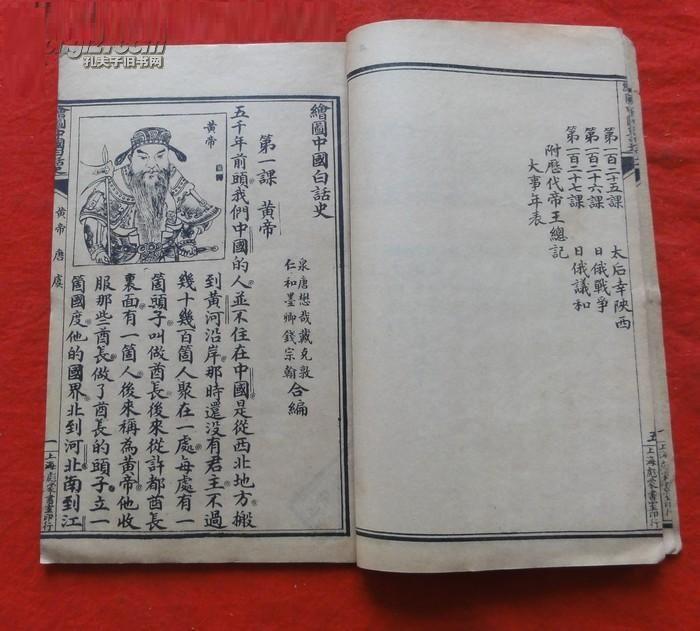 孔夫子旧书网
第一百二十五課 太后幸陝西
第一百二十六課 日俄戰爭
第一百二十七課 日俄議和
附歷代帝王總記
大事年表
五
上海彪蒙書室印行
繪圖中國白話史
第一課 黃帝
泉唐懋哉戴克敦
仁和墨卿錢宗翰
合編
黃帝
五千年前頭我們中國的人並不住在中國是從西北地方搬
到黃河沿岸那時還沒有君主不過
幾十幾百箇人聚在一處每處有一
箇頭子叫做酋長後來從許都酋長
裏面有一箇人後來稱為黃帝他收
服那些酋長做了酋長的頭子立一
箇國度他的國界北到河北南到江
繪圖中國白話史
黃帝 唐虞
一
上海彪蒙書室印行